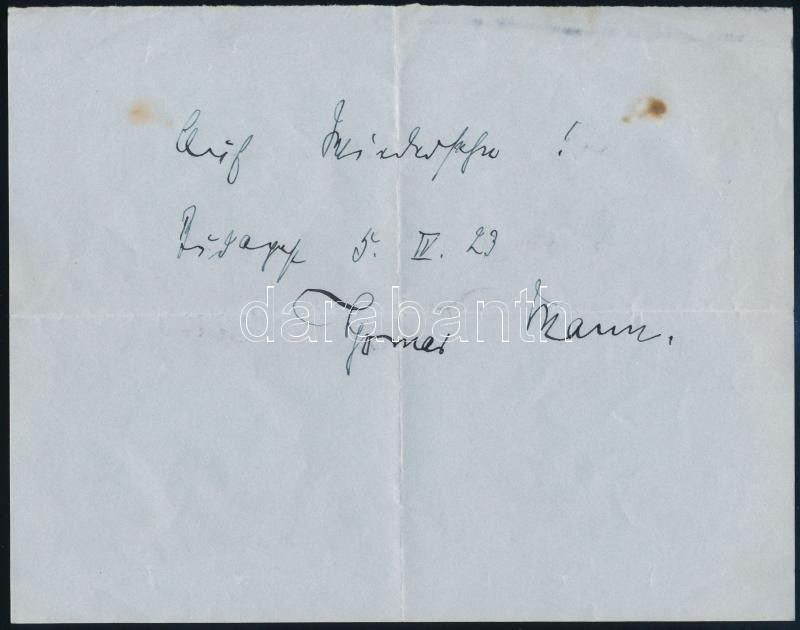 Auf Wiedersehn !
Budapest 5. IV. 23
Thomas Mann.
darabanth